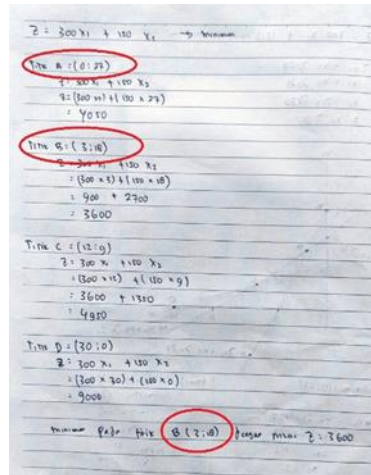 Z = 300 x₁ + 150 x₂ → minimum
Titik A : (0 : 27)
Z = 300 x₁ + 150 x₂
Z = (300 x 0) + (150 x 27)
= 4050
Titik B : (3 ; 18)
Z = 300 x₁ + 150 x₂
= (300 x 3) + (150 x 18)
= 900 + 2700
= 3600
Titik C = (12 ; 9)
Z = 300 x₁ + 150 x₂
= (300 x 12) + (150 x 9)
= 3600 + 1350
= 4950
Titik D = (30 ; 0)
Z = 300 x₁ + 150 x₂
= (300 x 30) + (150 x 0)
= 9000
minimum pada titik B (3 ; 18) dengan nilai Z = 3600